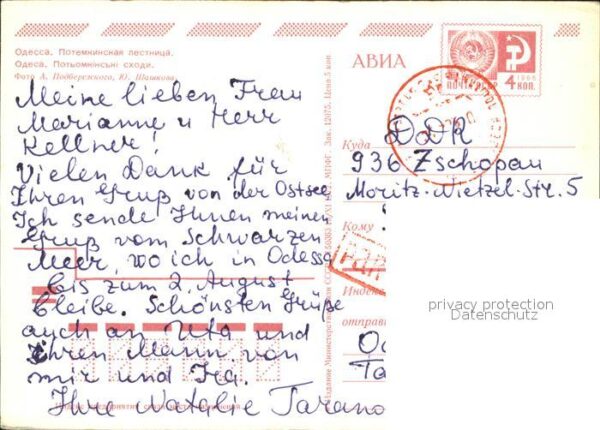 Одесса. Потемкинская лестница.
Одеса. Потьомкінські сходи.
Фото А. Подберезского, Ю. Шашкова
Meine lieben Frau
Marianne u Herr
Kellner!
Vielen Dank für
Ihren Gruß von der Ostsee
Ich sende Ihnen meinen
Gruß vom Schwarzen
Meer, wo ich in Odessa
bis zum 2. August
bleibe. Schönsten Grüße
auch an Uta und
Ihren Mann von
mir und Ira.
Ihre Natalie Tarano
Зак. 12075. Цена 5 коп
Издание Министерства связи СССР
АВИА
ПОЧТА
1966
4 КОП.
Куда
DDR
936 Zschopau
Moritz-Nietzel-Str. 5
Кому
Индекс
отправи
Od
Ta
privacy protection
Datenschutz